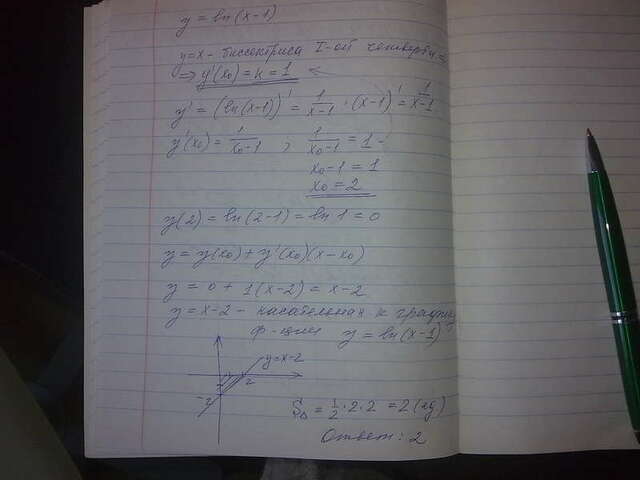 y = ln(x-1)
y=x - биссектриса I-ой четверти =
=> y'(x₀) = k = 1
y' = (ln(x-1))' = 1/(x-1) · (x-1)' = 1/(x-1)
y'(x₀) = 1/(x₀-1) ; 1/(x₀-1) = 1
x₀-1 = 1
x₀ = 2
y(2) = ln(2-1) = ln 1 = 0
y = y(x₀) + y'(x₀)(x-x₀)
y = 0 + 1(x-2) = x-2
y = x-2 - касательная к графику
ф-ции y = ln(x-1)
y=x-2
2
-2
S△ = 1/2 · 2 · 2 = 2 (ед)
Ответ: 2